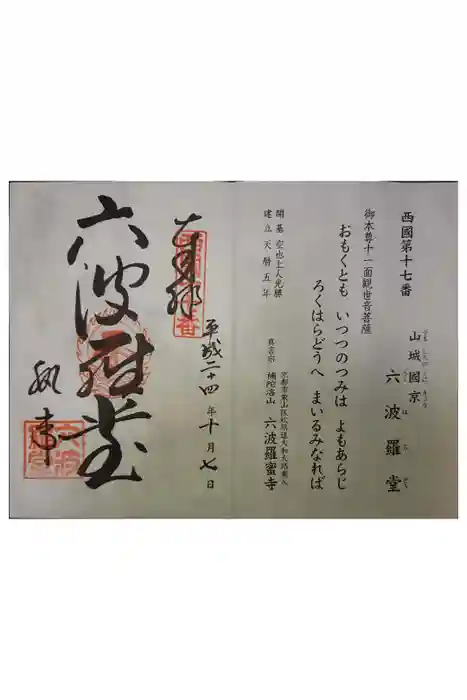 西國第十七番
山城國京
やましろのくにきょう
六波羅堂
ろくはらどう
御本尊十一面観世音菩薩
おもくとも いつつのつみは よもあらじ
ろくはらどうへ まいるみなれば
開基 空也上人光勝
建立 天暦五年
京都市東山区松原通大和大路東入
真言宗 補陀洛山 六波羅蜜寺
奉拝
平成二十四年十月七日
六波羅堂